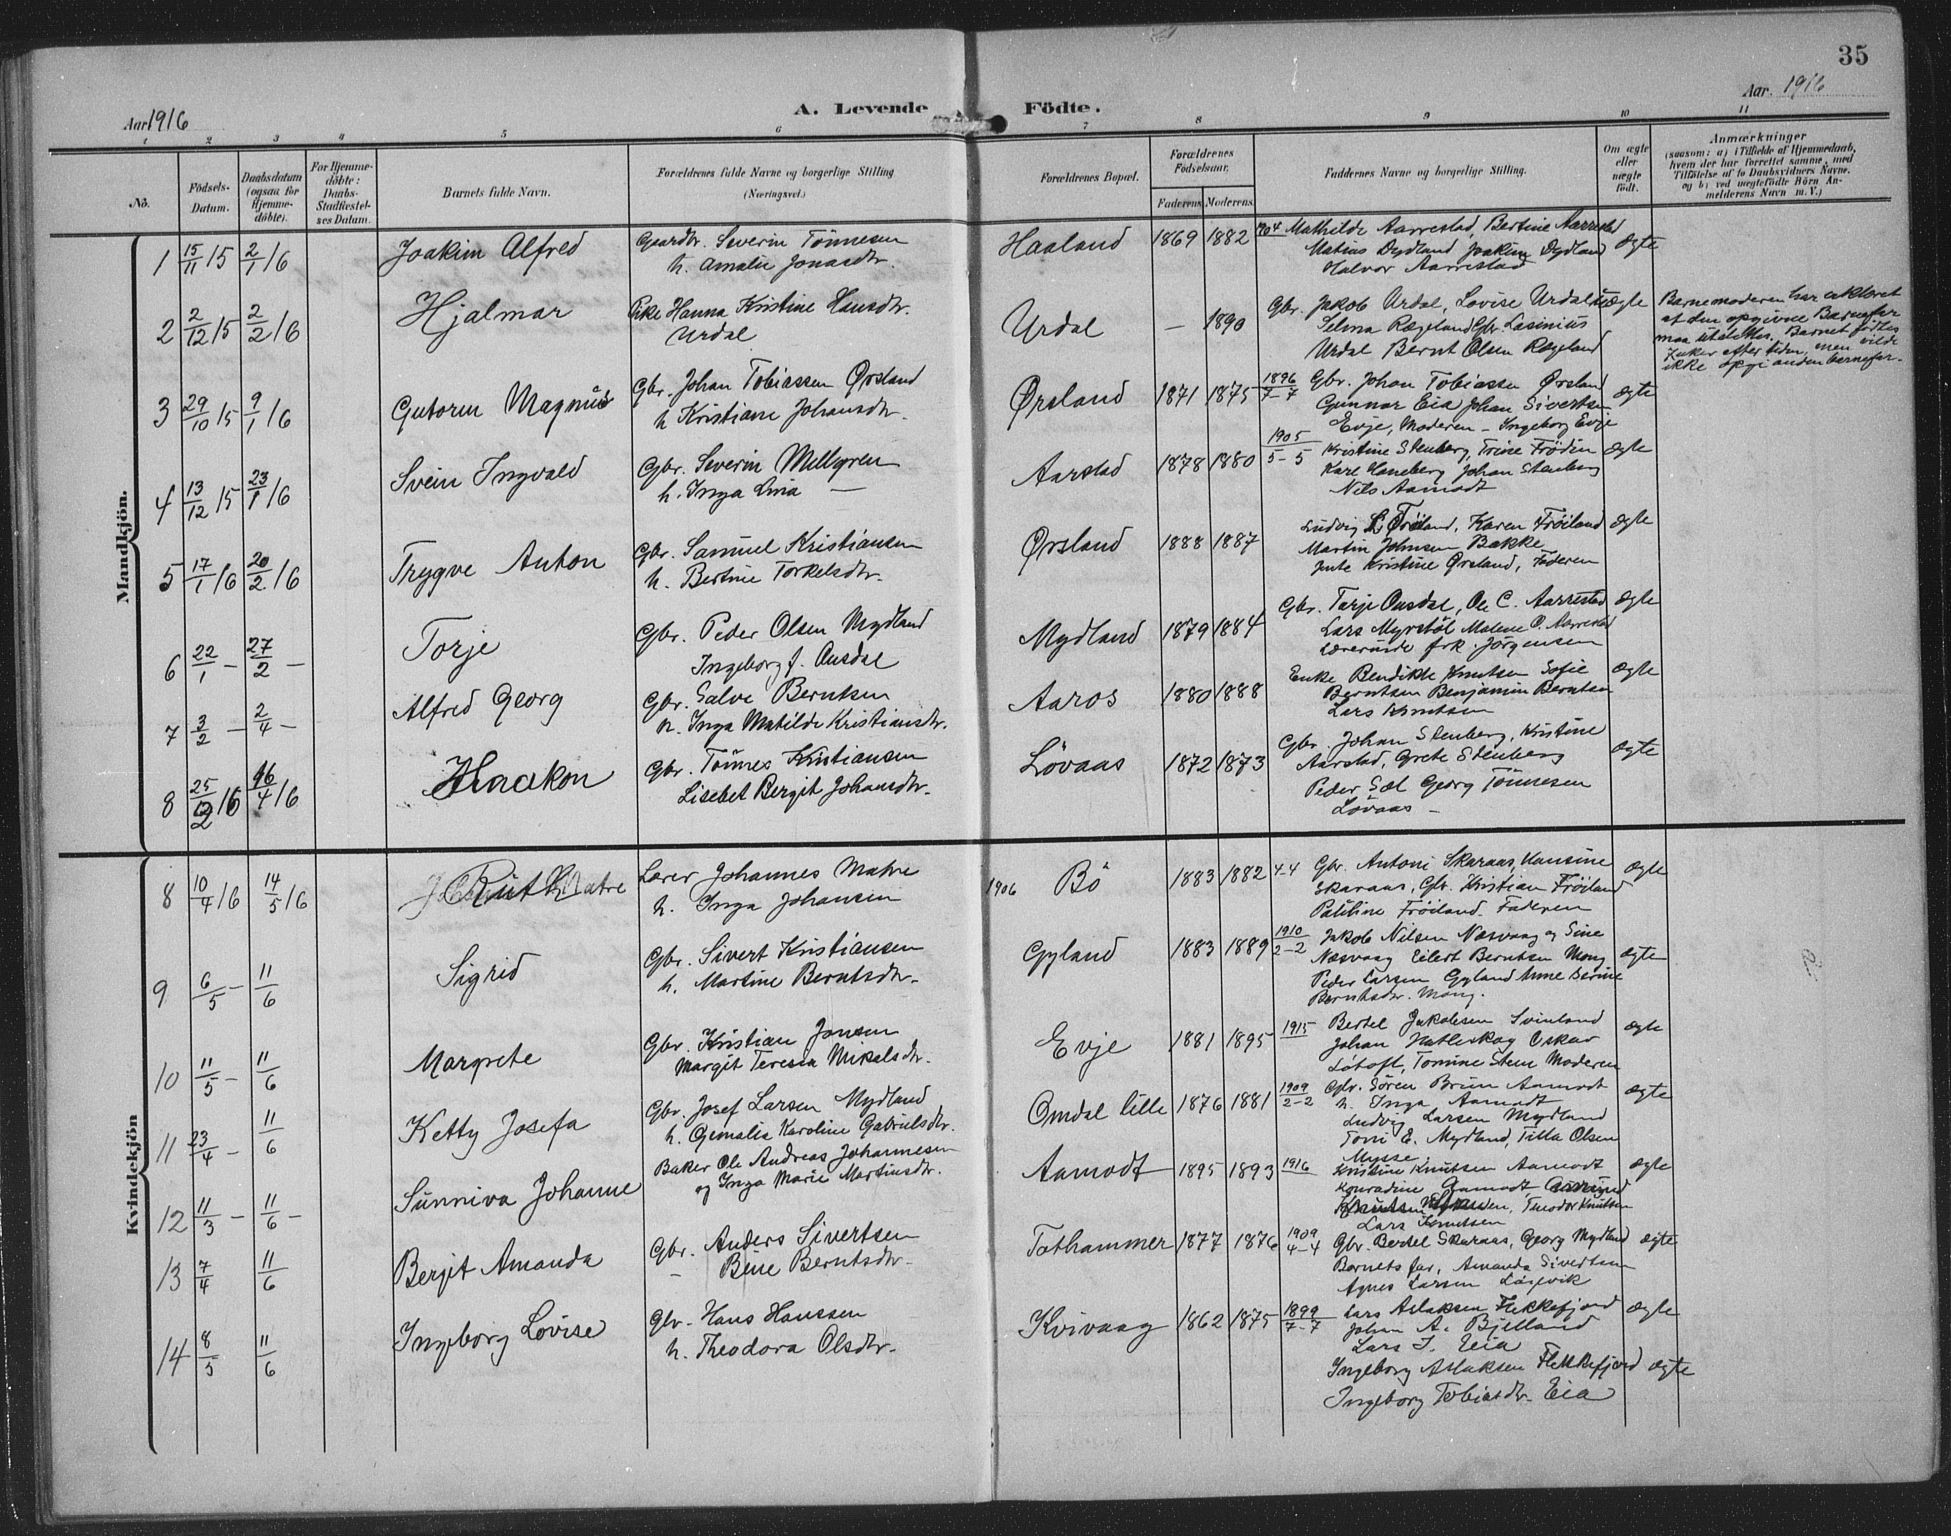 35
Aar 1916
A. Levende Födte.
Aar 1916
1 2 3 4 5 6 7 8 9 10 11
No.
Födsels-Datum.
Daabsdatum (ogsaa for Hjemme-döbte).
For Hjemme-döbte: Daabs-Stadfæstel-ses Datum.
Barnets fulde Navn.
Forældrenes fulde Navne og borgerlige Stilling (Næringsvei.)
Forældrenes Bopæl.
Forældrenes Födselsaar.
Faderens Moderens
Faddernes Navne og borgerlige Stilling.
Om ægte eller uægte födt.
Anmærkninger
(saasom: a) i Tilfælde af Hjemmedaab,
hvem der har forrettet samme, med
Tilföielse af to Daabsvidners Navne.
og b) ved uægtefödte Börn An-
melderens Navn m. V.)
Mandkjön.
1 15/11 15 2/1 16 Joakim Alfred
Gaardbr. Severin Tönnesen
h. Amalie Jonasdtr.
Haaland 1869 1882 1904
Mathilde Aarrestad, Bertine Aarrestad
Matias Dydland Joakim Dydland
Halvor Aarrestad
ægte
2 2/12 15 2/2 16 Hjalmar
Pike Hanna Kristine Hansdtr.
Urdal
Urdal — 1890
Gbr. Jakob Urdal, Lovise Urdal
Selma Rægeland Gbr. Lasinius
Urdal Bernt Olsen Rægeland
uægte
Barnemoderen har erklæret
at den opgivne Barnefar
maa utslettes. Barnet födtes
uker efter tiden, men vilde
ikke opgi anden barnefar.
3 29/10 15 9/1 16 Gutorm Magnus
Gbr. Johan Tobiassen Ørsland
h. Kristiane Johansdtr.
Ørsland 1871 1875 1896 7-7
Gbr. Johan Tobiassen Ørsland
Gunnar Eia Johan Sivertsen
Evje, Moderen - Ingeborg Evje
ægte
4 13/12 15 23/1 16 Svein Ingvald
Gbr. Severin Mellgren
h. Inga Lina —
Aarstad 1878 1880 1905 5-5
Kristine Stenberg, Trine Fröden
Karl Haneberg Johan Stenberg
Nils Aamodt
ægte
5 17/1 16 20/2 16 Trygve Anton
Gbr. Samuel Kristiansen
h. Bertine Torkelsdtr.
Ørsland 1888 1887
Ludvig Fröiland, Karen Fröiland
Martin Johnsen Bakke
Jente Kristine Ørsland, Faderen
ægte
6 22/1 — 27/2 — Torje
Gbr. Peder Olsen Mydland
Ingeborg f. Ousdal
Mydland 1879 1884
Gbr. Tarje Ousdal, Ole C. Aarrestad
Lars Myrstöl Malene O. Aarrestad
Lærerinde frk. Jörgensen
ægte
7 3/2 — 2/4 — Alfred Georg
Gbr. Salve Berntsen
h. Inga Matilde Kristiansdtr.
Aaros 1880 1888
Enke Bendikte Knutsen Sofie
Berntsen Benjamin Berntsen
Lars Knutsen
ægte
8 25/2 16 16/4 16 Haakon
Gbr. Tönnes Kristiansen
Lisebet Bergit Johansdtr.
Løvaas 1872 1873
Gbr. Johan Stenberg, Kristine
Aarstad, Grete Stenberg
Peder Sæl Georg Tönnesen
Løvaas —
ægte
Kvindekjön
8 10/4 16 14/5 16 Ruth Matre
Lærer Johannes Matre
h. Inga Johansen
1906 Bö 1883 1882 4-4
Gbr. Antoni Skaraas, Hansine
Skaraas, Gbr. Kristian Fröiland
Pauline Fröiland. Faderen
ægte
9 6/5 — 11/6 Sigrid
Gbr. Sivert Kristiansen
h. Martine Berntsdtr.
Gyland 1883 1889 1910 2-2
Jakob Nilsen Næsvaag og Sine
Næsvaag Eilert Berntsen Mong
Peder Larsen Gyland Anne Berine
Berntsdtr. Mong.
ægte
10 11/5 — 11/6 Margrete
Gbr. Kristian Jonsen
Margit Teresia Mikalsdtr.
Evje 1881 1895 1915
Bertel Jakobsen Svinland
Johan Hatleskog Oskar
Lötoft, Tomine Stene Moderen
ægte
11 23/4 — 11/6 Ketty Josefa
Gbr. Josef Larsen Mydland
h. Gemalia Karoline Gabrielsdtr.
Omdal lille 1876 1881 1909 2-2
Gbr. Sören Bruin Aamodt
h. Inga Aamodt
Ludvig Larsen Mydland
Toni E. Mydland, Tilla Olsen
Mysse.
ægte
12 11/3 — 11/6 — Sunniva Johanne
Baker Ole Andreas Johannesen
og Inga Marie Martinsdtr.
Aamodt 1895 1893 1916
Kristine Knutsen Aamodt
Konradine Aamodt
Theodor Knutsen
Lars Knutsen
ægte
13 7/4 11/6 Bergit Amanda
Gbr. Anders Sivertsen
— Bine Berntsdtr.
Tothammer 1877 1876 1909 4-4
Gbr. Bertel Skaraas, Georg Mydland
Barnets far, Amanda Sivertsen
Agnes Larsen Lögevik
ægte
14 8/5 11/6 Ingeborg Lovise
Gbr. Hans Hanssen
h. Theodora Olsdtr.
Kvivaag 1862 1875 1899 7-7
Lars Aslaksen Flekkefjord
Johan A. Bjelland
Lars J. Eia
Ingeborg Aslaksen Flekkefjord
Ingeborg Tobiasdtr. Eia
ægte
ægte